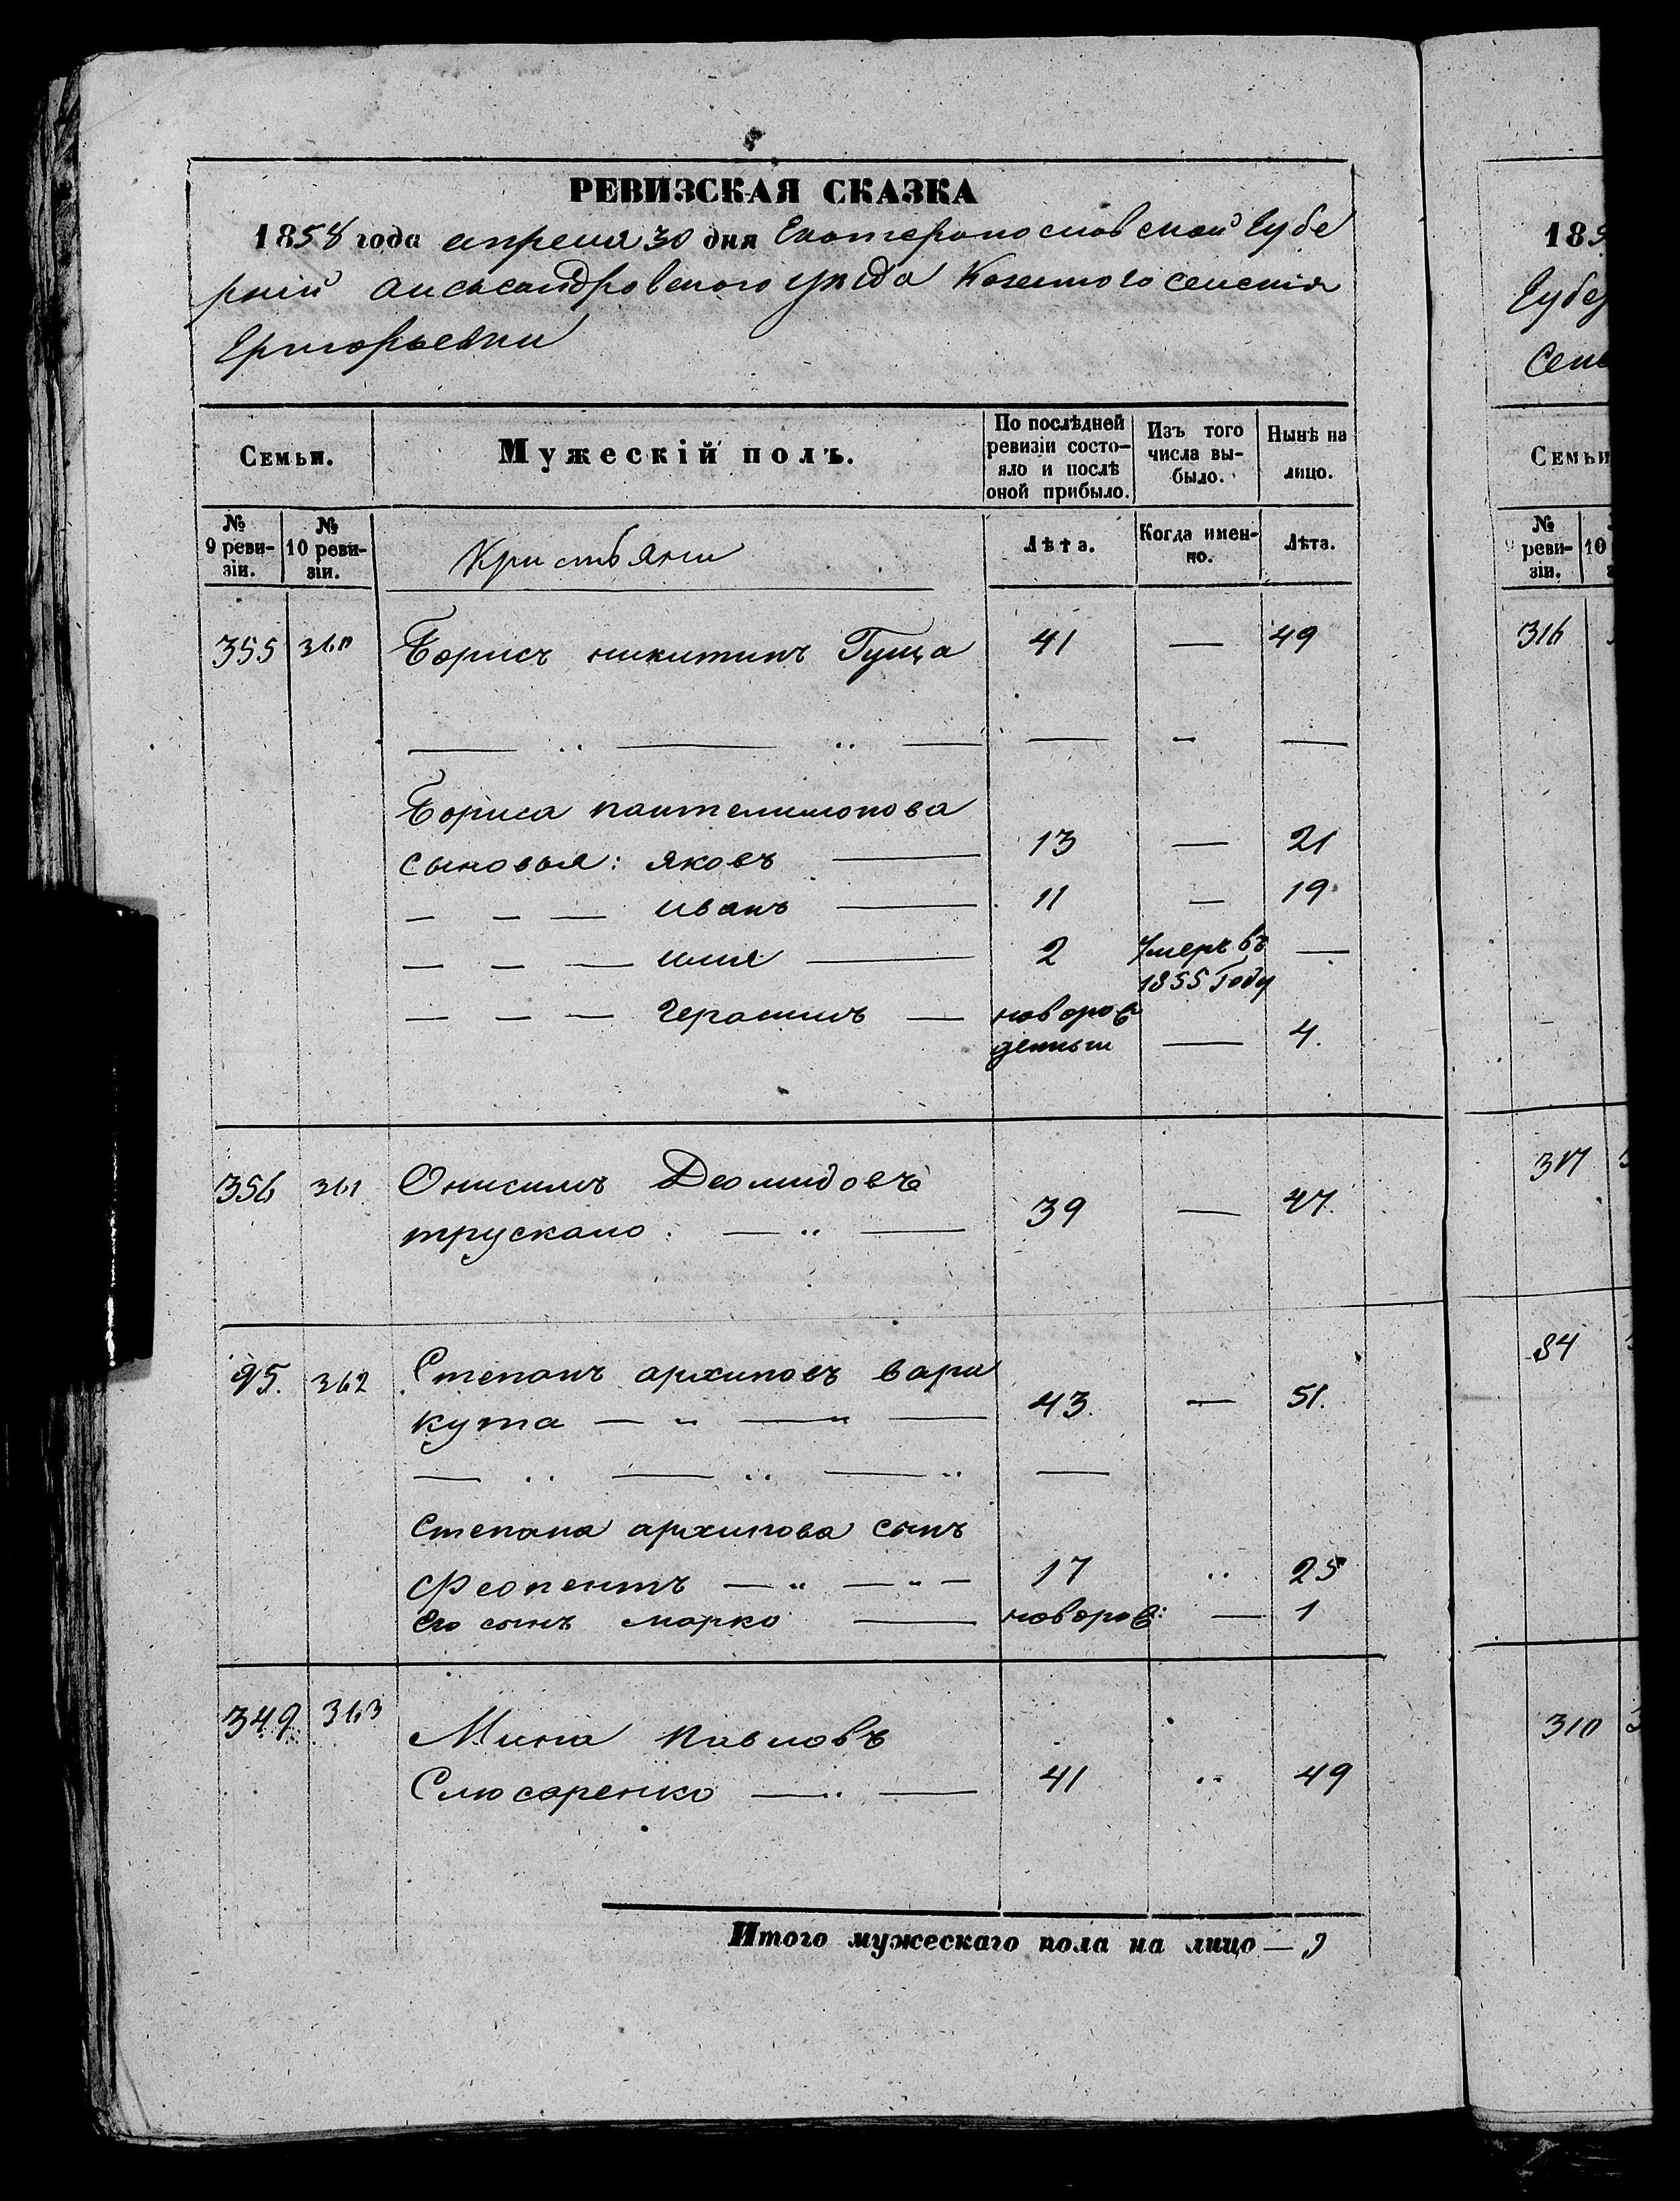 РЕВИЗСКАЯ СКАЗКА
1858 года апреля 30 дня Екатеринославской Губе
рнии Александровского уезда Казенного селения
Григорьевки
Семьи. Мужескій полъ. По послѣдней ревизіи состо-яло и послѣ оной прибыло. Изъ того числа вы-было. Нынѣ на лицо.
№ 9 реви-зіи. № 10 реви-зіи. Кристьяни Лѣта. Когда имен-но. Лѣта.
355 360 Борисъ никитинъ Гуща 41 — 49
Бориса пантелимонова
сыновья: яковъ — 13 — 21
— — — иванъ — 11 — 19
— — — илия — 2 Умеръ въ —
1855 Году
— — — герасимъ — новорож
денный — 4.
356 361 Онисимъ Деомидовъ
трускало. — 39 — 47.
95. 362 Степанъ архиповъ вари
кута — 43. — 51.
Степана архипова сынъ
Феопентъ — 17 25
Его сынъ марко — новорож: — 1
349 363 Мина павловъ
Слюсаренко — 41 49
Итого мужескаго пола на лицо — 9
185
Губер
Семьи
№ реви-зіи. 10
316
317
84
310